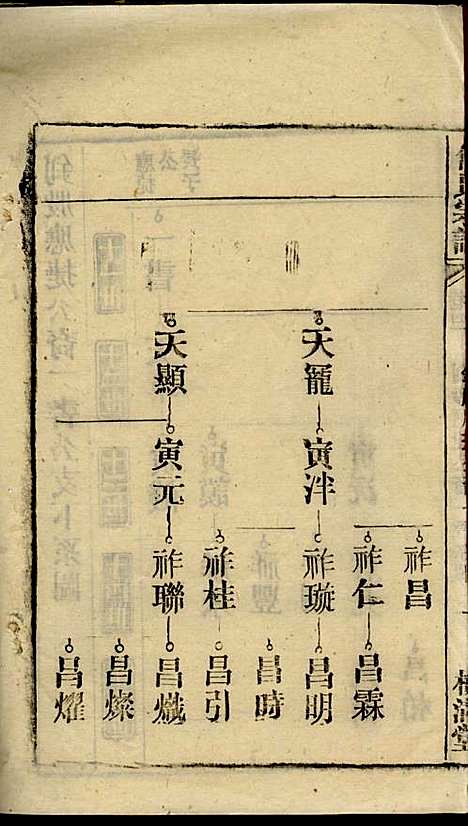 天寵
寅泮
祚昌
祚仁
昌霖
祚璇
昌明
昌時
天顯
寅元
祚桂
昌引
祚聯
昌熾
昌燦
昌燿